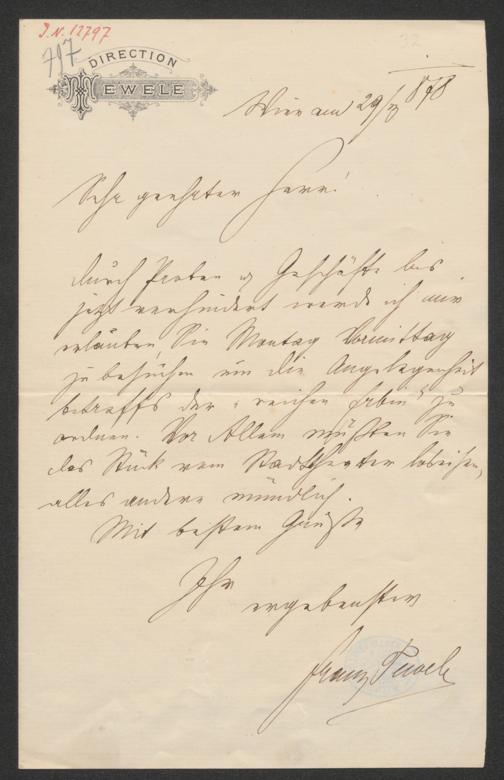 J.N. 12797
797
32
DIRECTION
TEWELE
Wien am 29/ 878
Sehr geehrter Herr!
durch Proben u Geschäfte bis
jetzt verhindert werde ich mir
erlauben Sie Montag Vormittag
zu besuchen um die Angelegenheit
betreffs der „reichen Erbin" zu
ordnen. Vor Allem müßten Sie
das Stück vom Stadttheater loseisen,
alles andere mündlich.
Mit bestem Gruße
Ihr
ergebenster
Franz Tewele